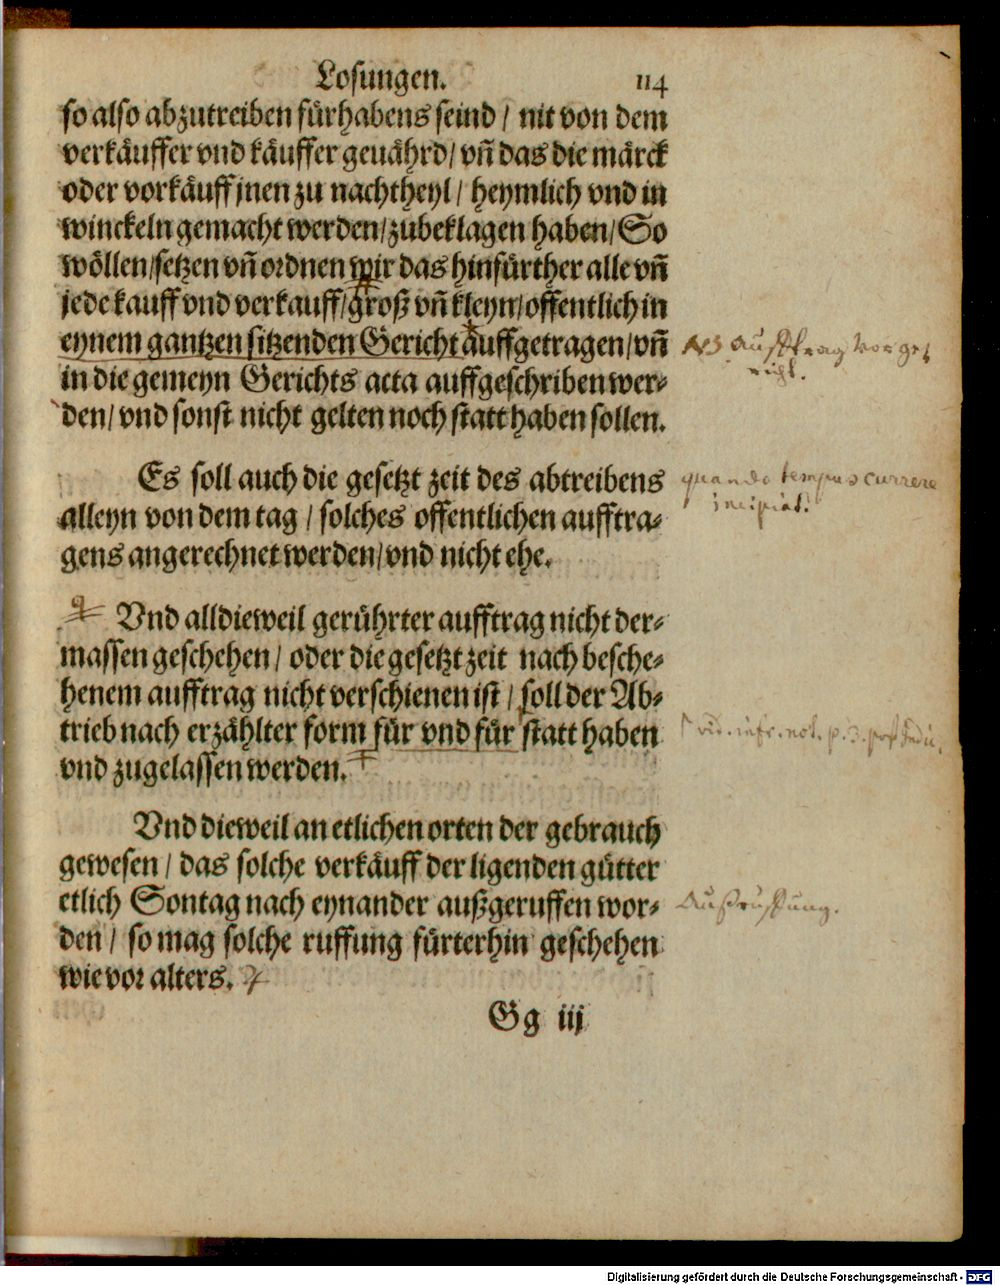 Losungen. 114
so also abzutreiben fürhabens seind / nit von dem
verkäuffer vnd käuffer geuährd / vn̄ das die märck
oder vorkäuff jnen zu nachtheyl / heymlich vnd in
winckeln gemacht werden / zubeklagen haben / So
wöllen / setzen vn̄ ordnen wir das hinfürther alle vn̄
jede kauff vnd verkauff / groß vn̄ kleyn / offentlich in
eynem gantzen sitzenden Gericht auffgetragen / vn̄
in die gemeyn Gerichts acta auffgeschriben wer⸗
den / vnd sonst nicht gelten noch statt haben sollen.
NB aufftrag vor ge⸗
richt.
Es soll auch die gesetzt zeit des abtreibens
alleyn von dem tag / solches offentlichen aufftra⸗
gens angerechnet werden / vnd nicht ehe.
quando tempus currere
incipiat.
Vnd alldieweil gerührter aufftrag nicht der⸗
massen geschehen / oder die gesetzt zeit nach besche⸗
henem aufftrag nicht verschienen ist / soll der Ab⸗
trieb nach erzählter form für vnd für statt haben
vnd zugelassen werden.
Vnd dieweil an etlichen orten der gebrauch
gewesen / das solche verkäuff der ligenden gütter
etlich Sontag nach eynander außgeruffen wor⸗
den / so mag solche ruffung fürterhin geschehen
wie vor alters.
Außruffung.
Gg iij
Digitalisierung gefördert durch die Deutsche Forschungsgemeinschaft - DFG